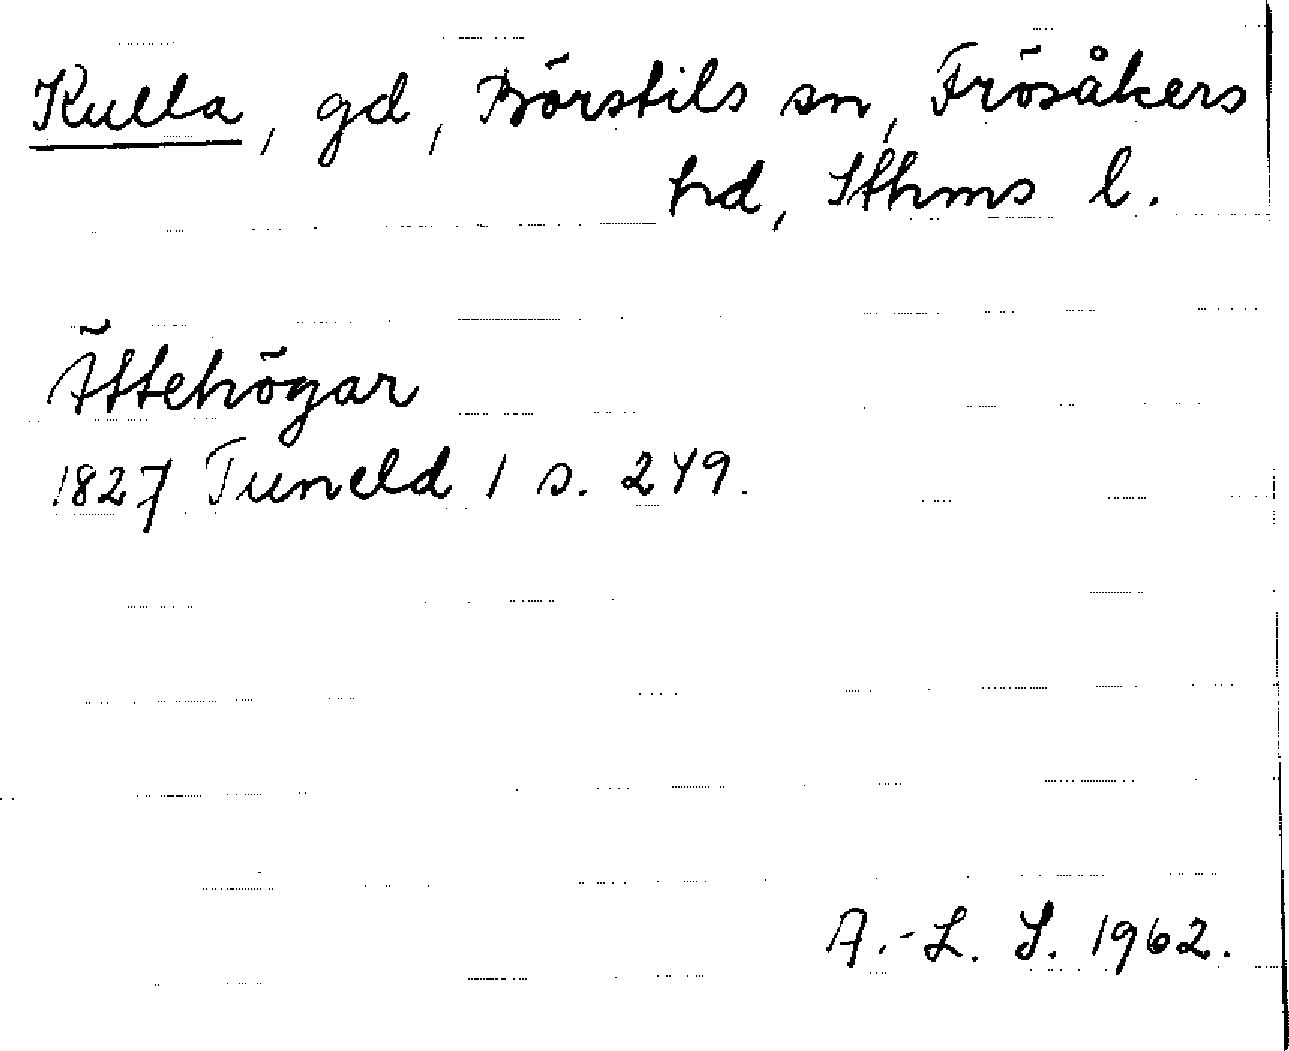 Kulla, gd, Börstils sn, Frösåkers
hd, Sthms l.
Ättehögar
1827 Tuneld 1 s. 249.
A.-L. S. 1962.